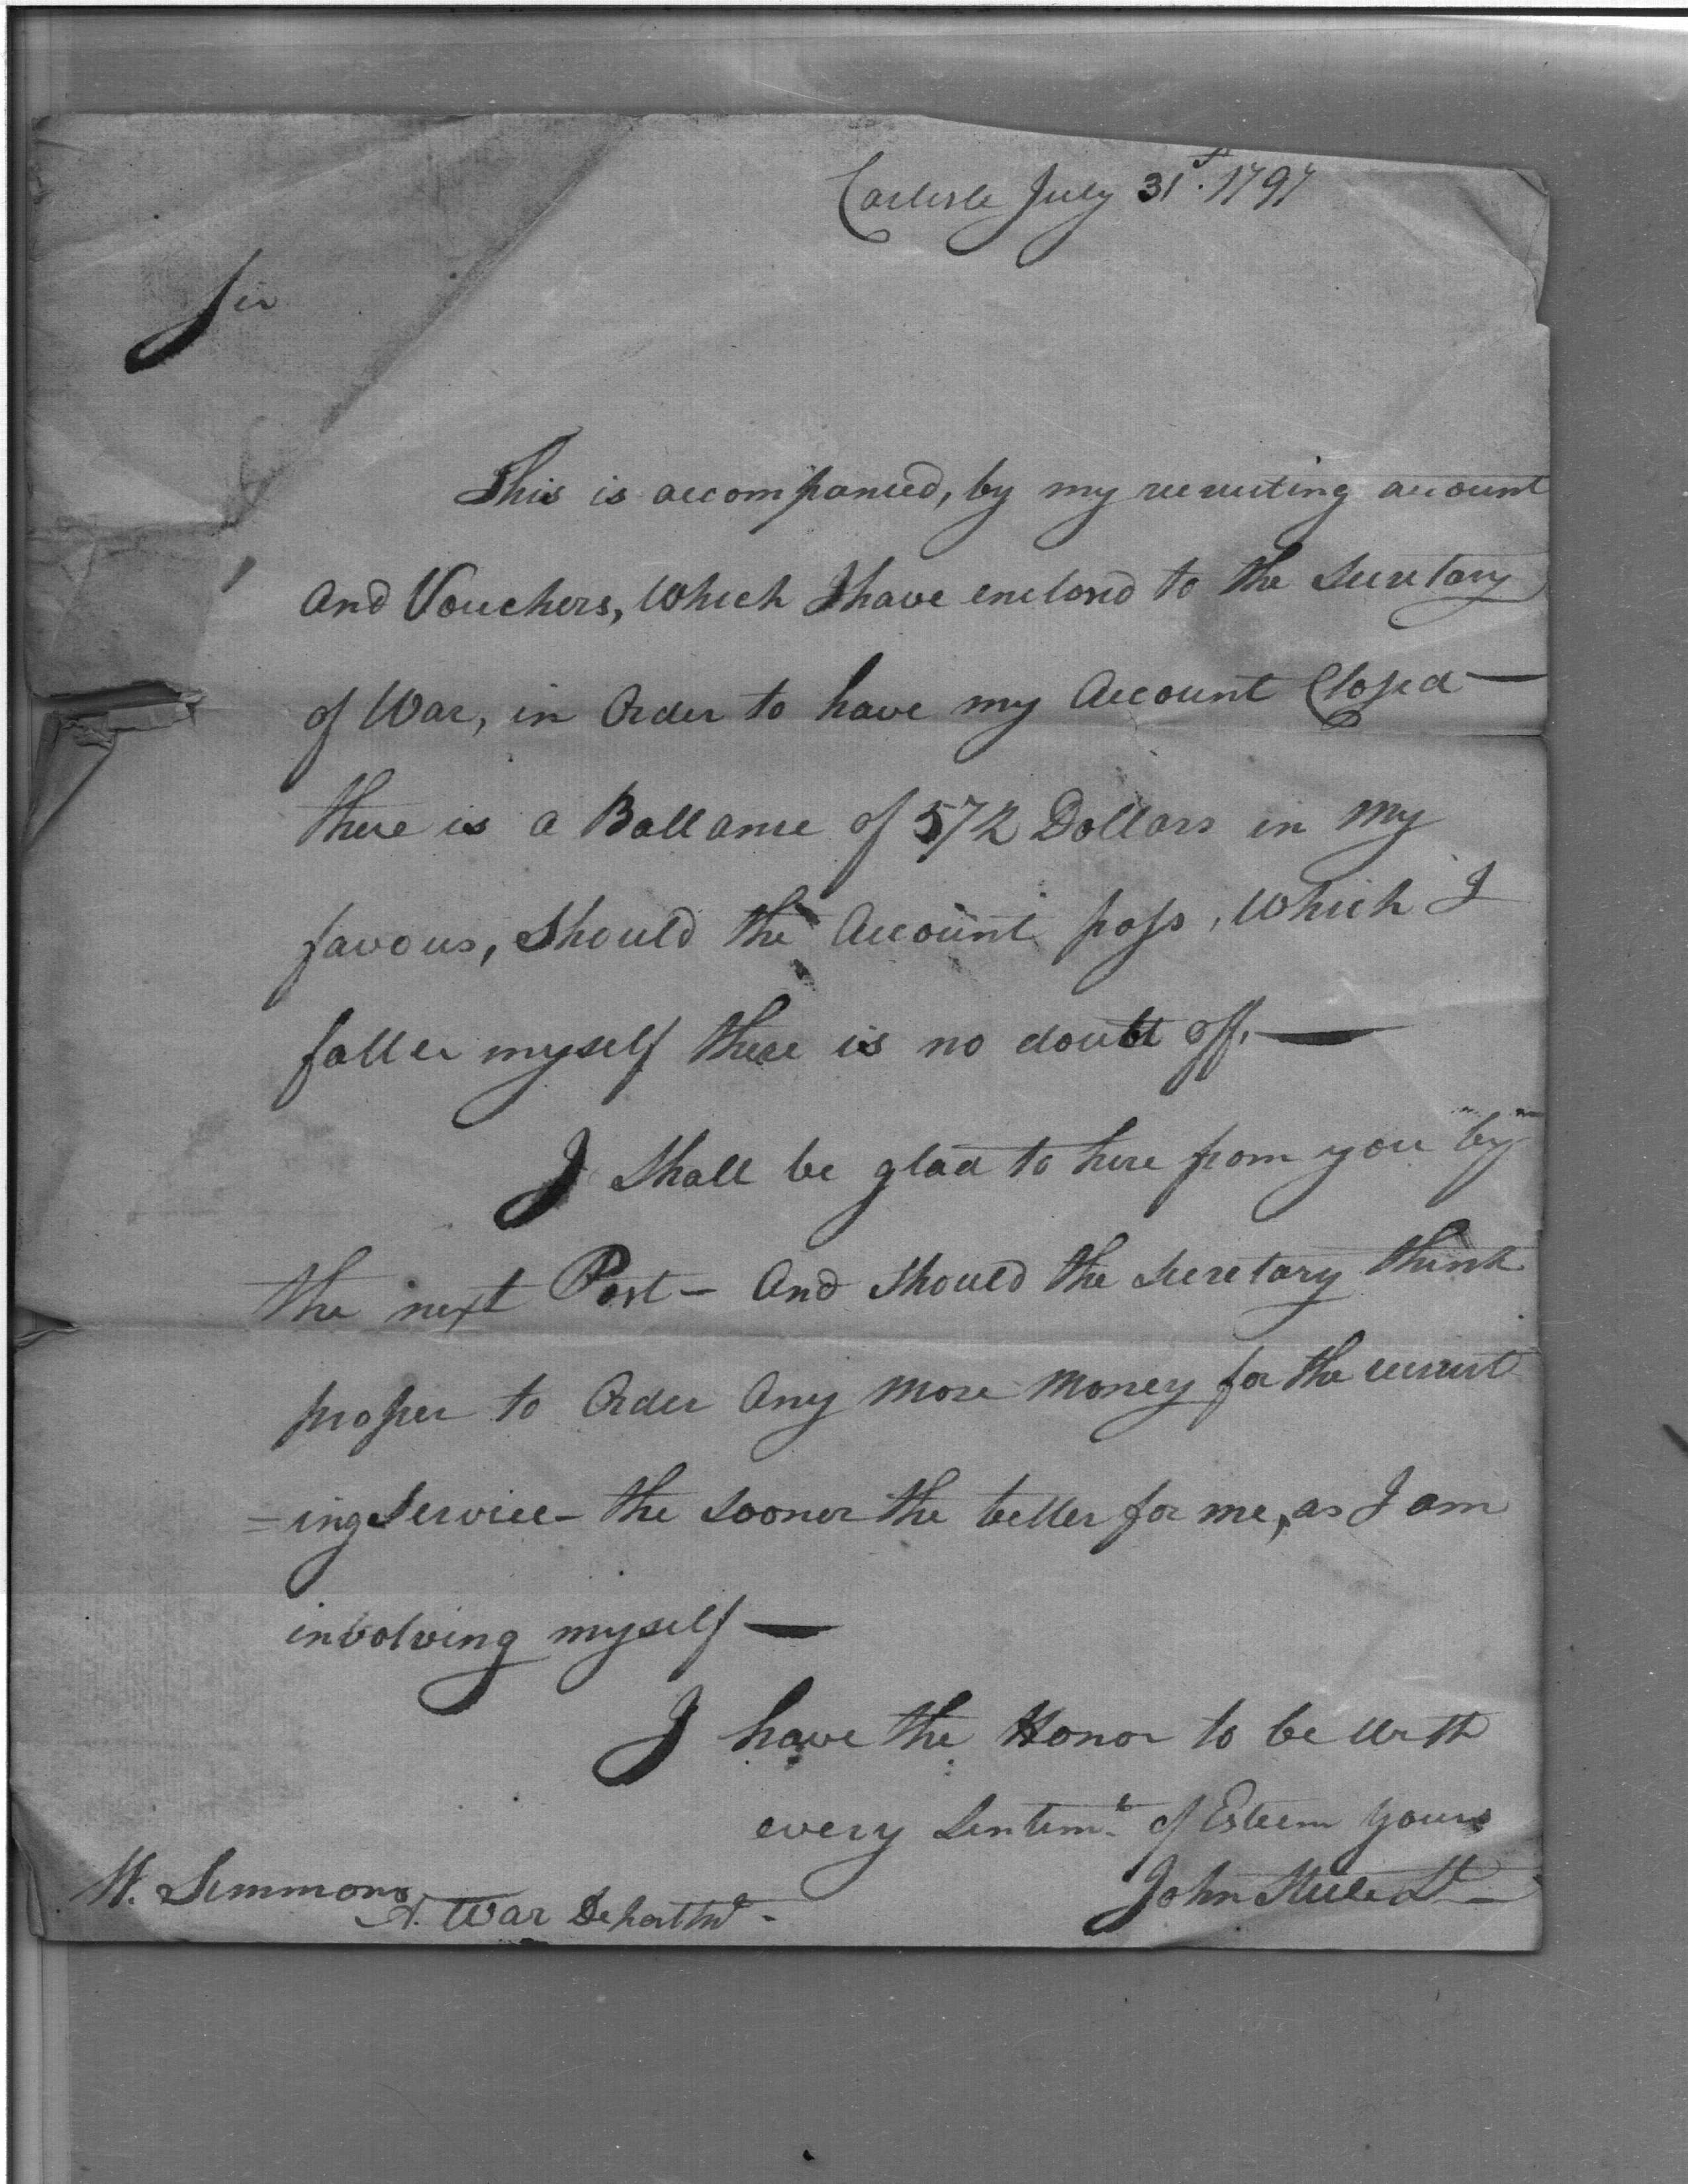 Carlisle July 31st. 1797
Sir
This is accompanied, by my recruiting account
And Vouchers, Which I have enclosd to the Secretary
of War, in Order to have my Account Closed —
there is a Ballance of 572 Dollars in My
favour, Should the Account pass, Which I
fatter myself there is no doubt off. —
I Shall be glad to here from you by
the next Post — And Should the Secretary think
proper to Order Any More Money for the recruit
=ing Service — the Sooner the better for me, as I am
involving myself —
I have the Honor to be With
every Sentimt. of Esteem Yours
John Steele Lt —
W. Simmons
A. War Departmt. -